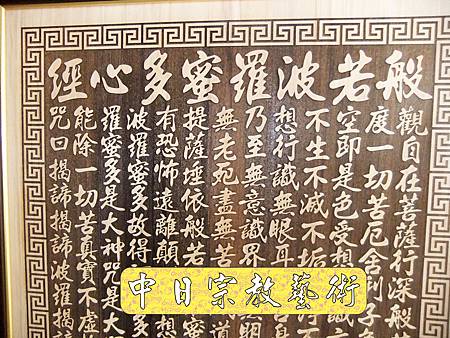 般若波羅蜜多心經
觀自在菩薩行深般
度一切苦厄舍利子
空即是色受想
不生不滅不垢
想行識無眼耳
乃至無意識界
無老死盡無苦
提薩埵依般若
有恐怖遠離顛
波羅蜜多故得
羅蜜多是大神咒是大
能除一切苦真實不虛
咒曰揭諦揭諦波羅揭諦
中日宗教藝術